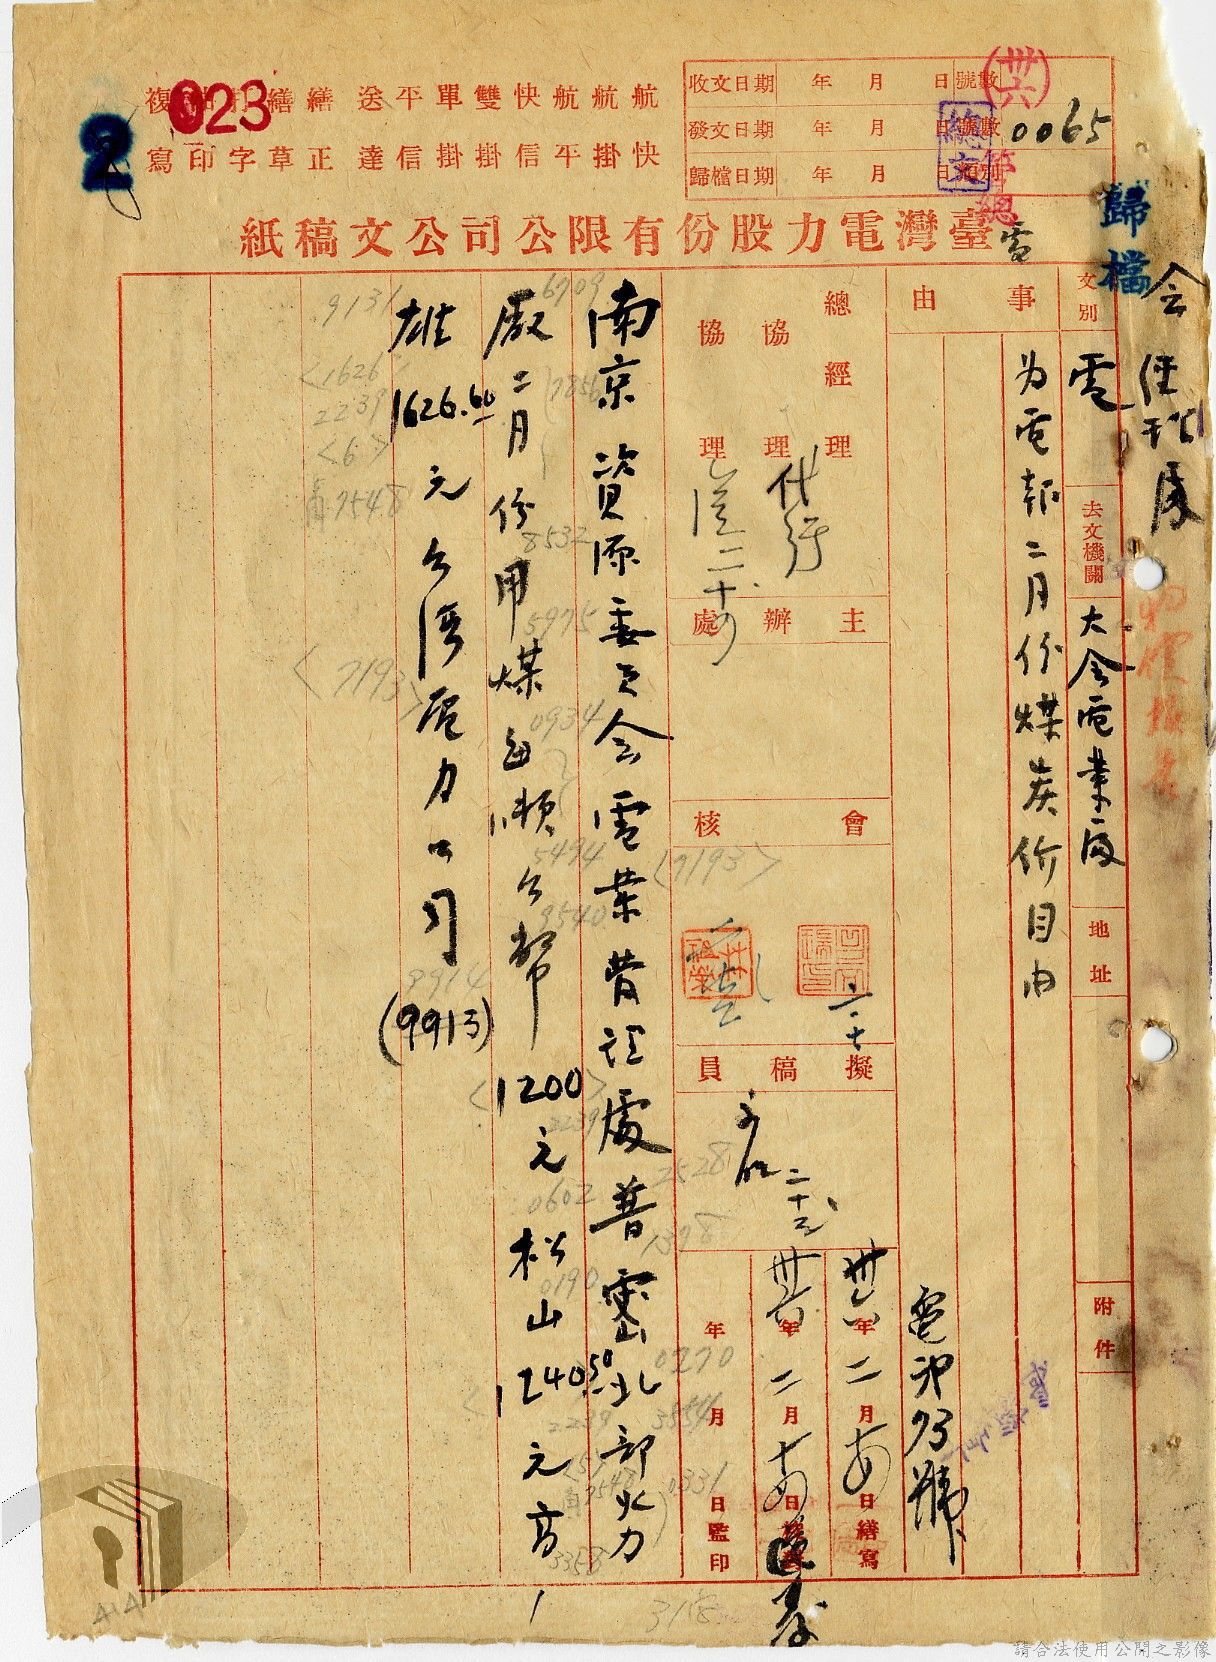 航航航快雙單平送繕繕
快掛平信掛掛信達正草字印寫
複
023
2
收文日期 年 月 日 號數
發文日期 年 月 日 號數 0065
歸檔日期 年 月 日 類別
(卅六)
總文
管總
電
歸檔
臺灣電力股份有限公司公文稿紙
文別 電 去文機關 大会電業處 地址 附件
事由 为電報二月份煤炭价目由
電沖93號
總經理
協理 代行
協理
主辦處
會核
擬稿員
卅六年二月 日繕寫
卅六年二月 日
年 月 日監印
南京資源委員会電業管理處普密北部火力
廠二月份用煤每噸台幣1200元松山1240.50元高
雄1626.60元台灣電力公司(9913)
6709
7856
8532
5975
0934
5494
9540
2239
0602
0190
2239
7548
3358
<7193>
2528
1398
0270
3554
0331
3155
9131
<1626>
2239
<6>
7548
<7193>
9914
請合法使用公開之影像